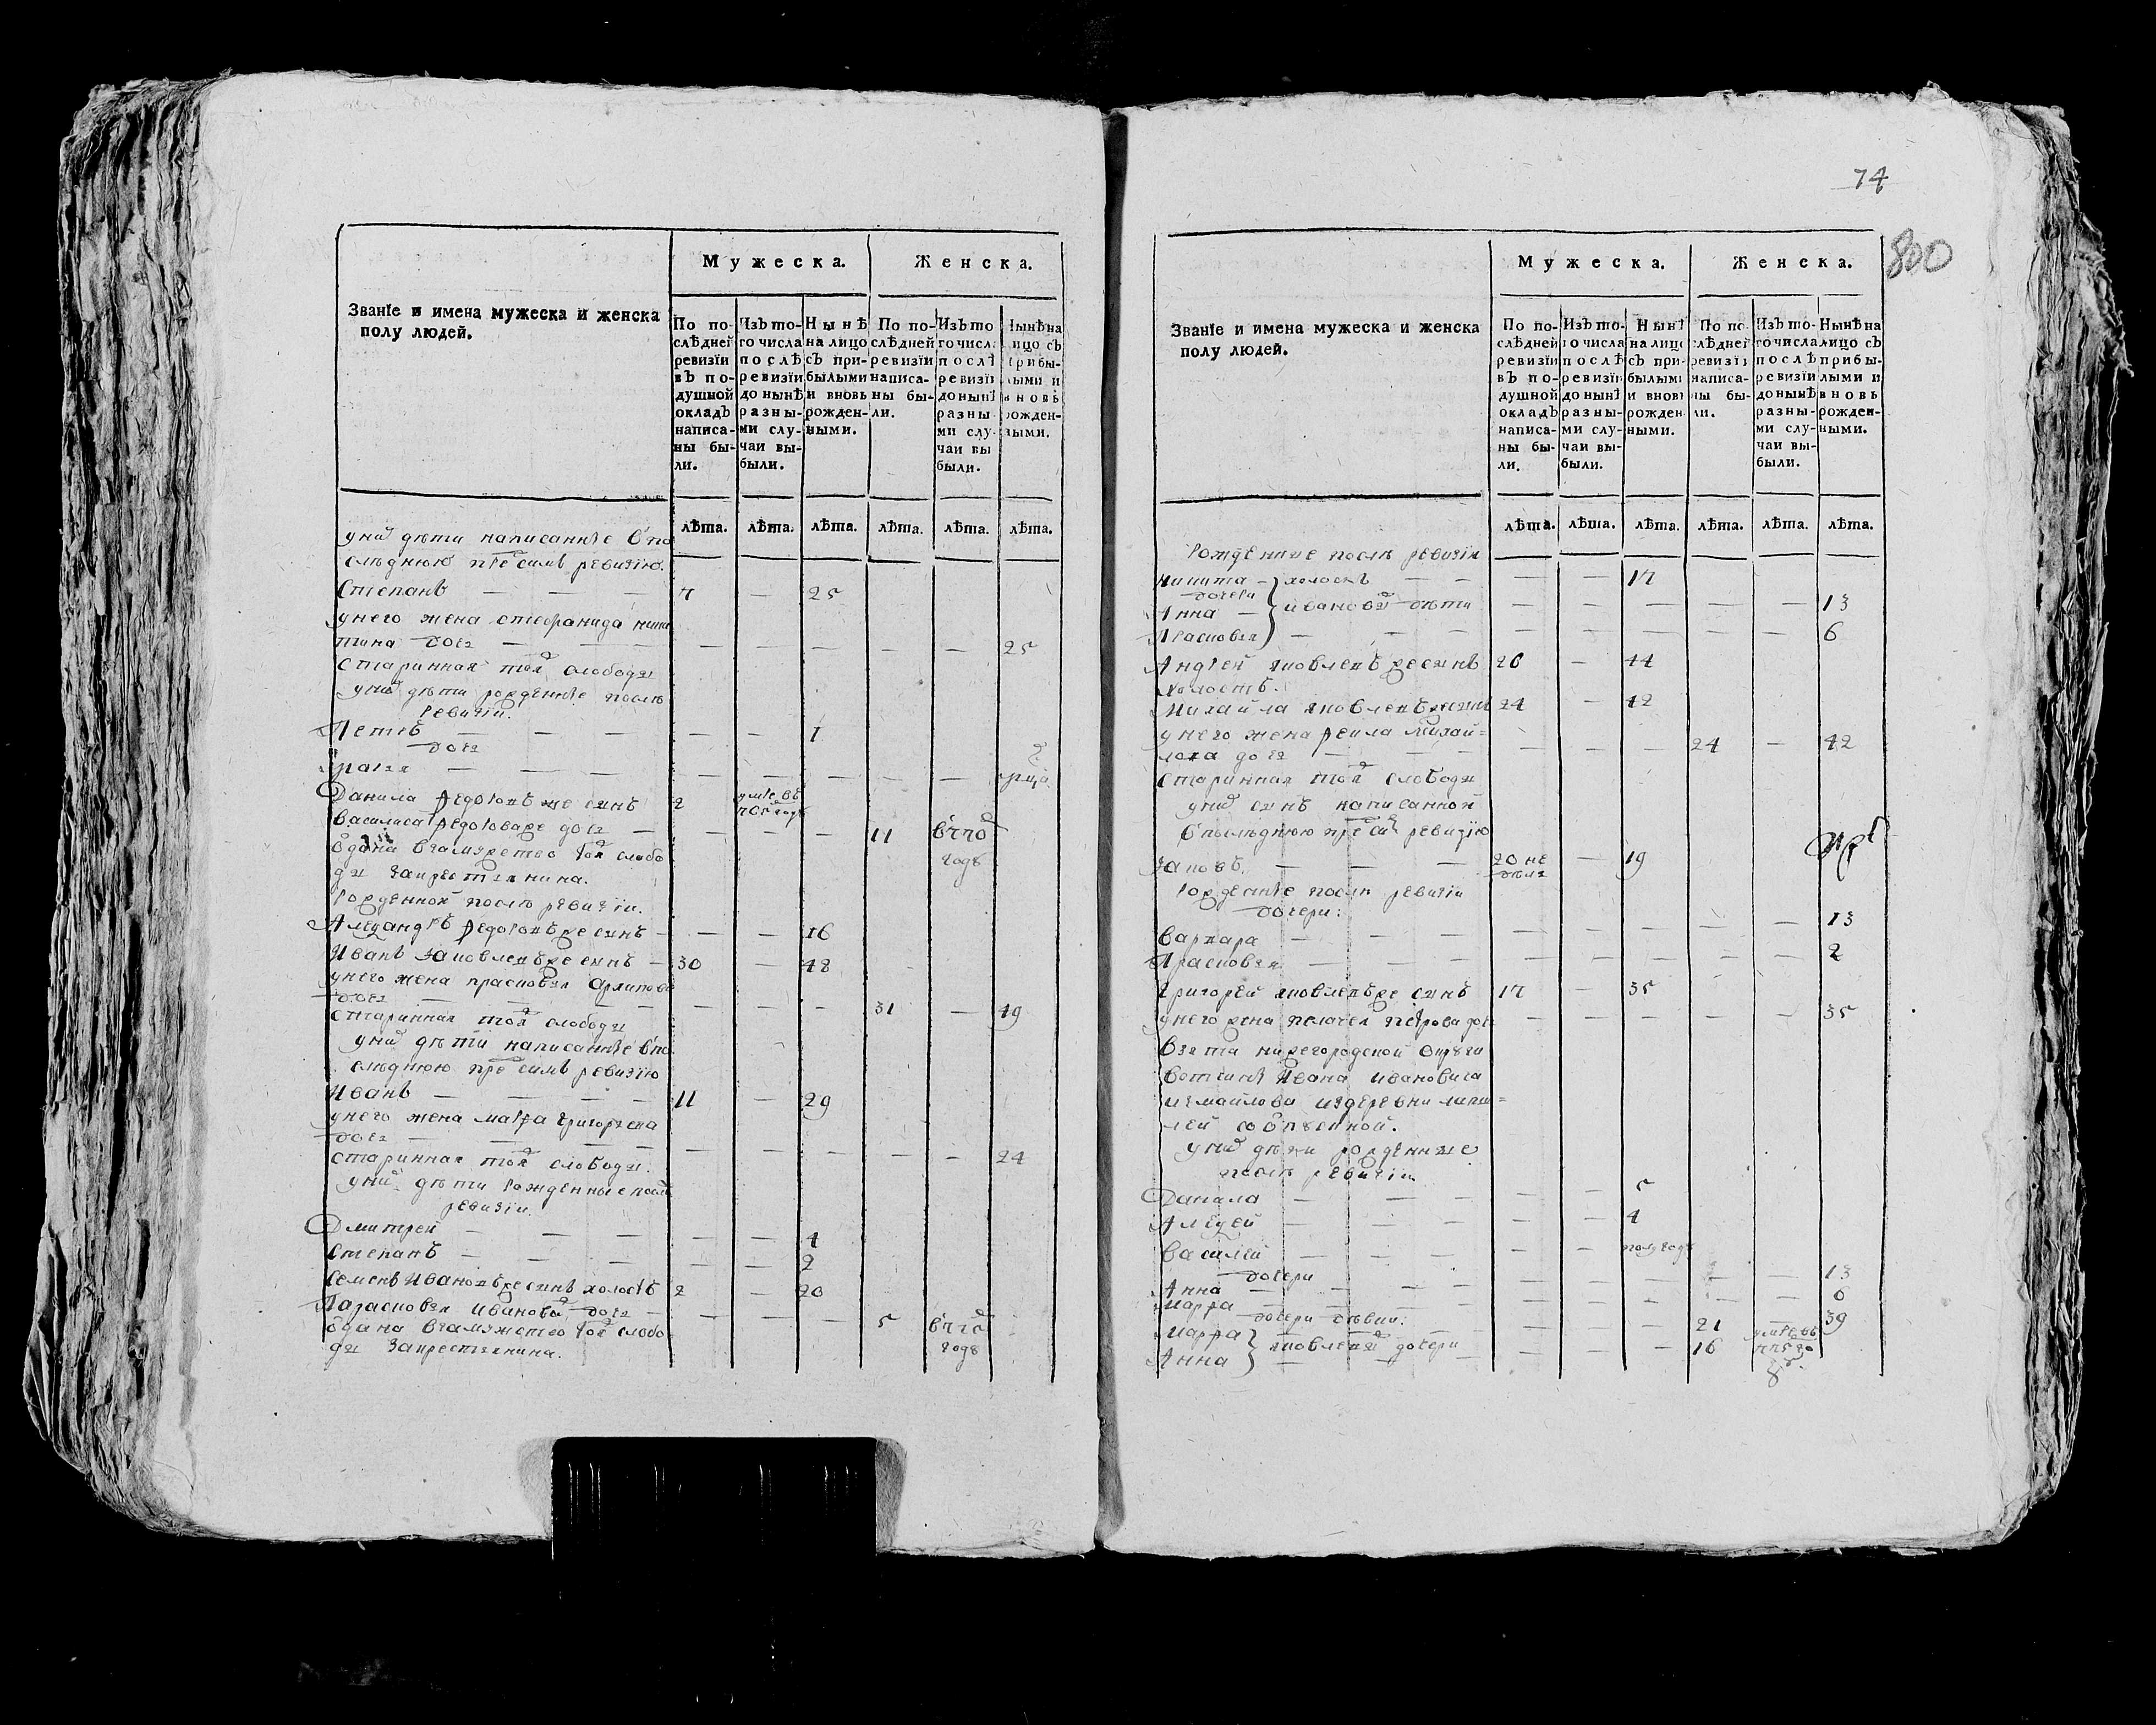 74
800
Званїе и имена мужеска и женска
полу людей.
Мужеска.
Женска.
По по-
слѣдней
ревизїи
въ по-
душной
окладъ
написа-
ны бы-
ли.
Изъ то-
го числа
послѣ
ревизїи
до нынѣ
разны-
ми слу-
чаи вы-
были.
Нынѣ
на лицо
съ при-
былыми
и вновь
рожден-
ными.
По по-
слѣдней
ревизїи
написа-
ны бы-
ли.
Изъ то
го числа
послѣ
ревизїи
до нынѣ
разны-
ми слу-
чаи вы
были.
Нынѣ на
лицо съ
прибы-
лыми и
вновь
рожден-
ными.
лѣта. лѣта. лѣта. лѣта. лѣта. лѣта.
у них дѣти написаннїе в по
слѣднюю пре сим ревизїю.
Степанъ — — — 7 — 25
у него жена стефанида ники
тина дочь — — — — — — — 25
старинная той слободы
у них дѣти рожденнїе послѣ
ревизїи.
Петръ — — — — — 1
дочь
— — — — — — — —
Данила Федоровъ же сынъ 2
Василиса Федорова же дочь — — — — 11
года
слобо
ды за крестьянина.
Рожденной послѣ ревизїи.
Александръ Федоровъ же сынъ — — — 16
Иванъ Яковлевъ же сынъ — 30 — 48
у него жена прасковья Архипова
дочь — — — — — — 31 — 49
старинная той слободы
у них дѣти написаннїе в по
слѣднюю пре симъ ревизїю
Иванъ — — — — 11 — 29
у него жена марфа григорьева
дочь — — — — — — — — 24
старинная той слободы.
у них дѣти рожденные послѣ
ревизїи.
Дмитрей — — — — — 4
Степанъ — — — — — 2
Семенъ Ивановъ же сынъ холостъ 2 — 20
Парасковья Иванова дочь — — — — 5
года
слобо
ды за крестьянина.
Званїе и имена мужеска и женска
полу людей.
Мужеска.
Женска.
По по-
слѣдней
ревизїи
въ по-
душной
окладъ
написа-
ны бы-
ли.
Изъ то-
го числа
послѣ
ревизїи
до нынѣ
разны-
ми слу-
чаи вы-
были.
Нынѣ
на лицо
съ при-
былыми
и вновь
рожден
ными.
По по-
слѣдней
ревизїи
написа-
ны бы-
ли.
Изъ то-
го числа
послѣ
ревизїи
до нынѣ
разны-
ми слу-
чаи вы-
были.
Нынѣ на
лицо съ
прибы-
лыми и
вновь
рожден-
ными.
лѣта. лѣта. лѣта. лѣта. лѣта. лѣта.
Рожденные послѣ ревизїи
Никита — холостъ — — — — 17
дочери
Анна — ивановы дѣти — — — — — 13
Прасковья — — — — — — — — 6
Андрей яковлевъ же сынъ 26 — 44
холостъ.
Михайла яковлевъ же сынъ 24 — 42
у него жена Фекла михай=
лова дочь — — — — — 24 — 42
старинная той слободы
у них сынъ написанной
в последнюю пре сим ревизїю
Яковъ. — — — 20 не — 19
дель
Рожденнїе послѣ ревизїи
дочери:
Варвара — — — — — — — — 13
Прасковья — — — — — — — — 2
Григорей яковлевъ же сынъ 17 — 35
у него жена пелагея петрова дочь — — — — — 35
Взята нижегородской округи
вотчины Ивана Ивановича
измайлова из деревни
у них дѣти рожденные
послѣ ревизїи
Данила — — — — — 5
Алексей — — — — — 4
Василей — — — — — полугода
дочери
Анна — — — — — — — — 13
Марфа — — — — — — — — 6
дочери девки:
Марфа — — — — 21 — 39
Анна яковлевы дочери — — — 16